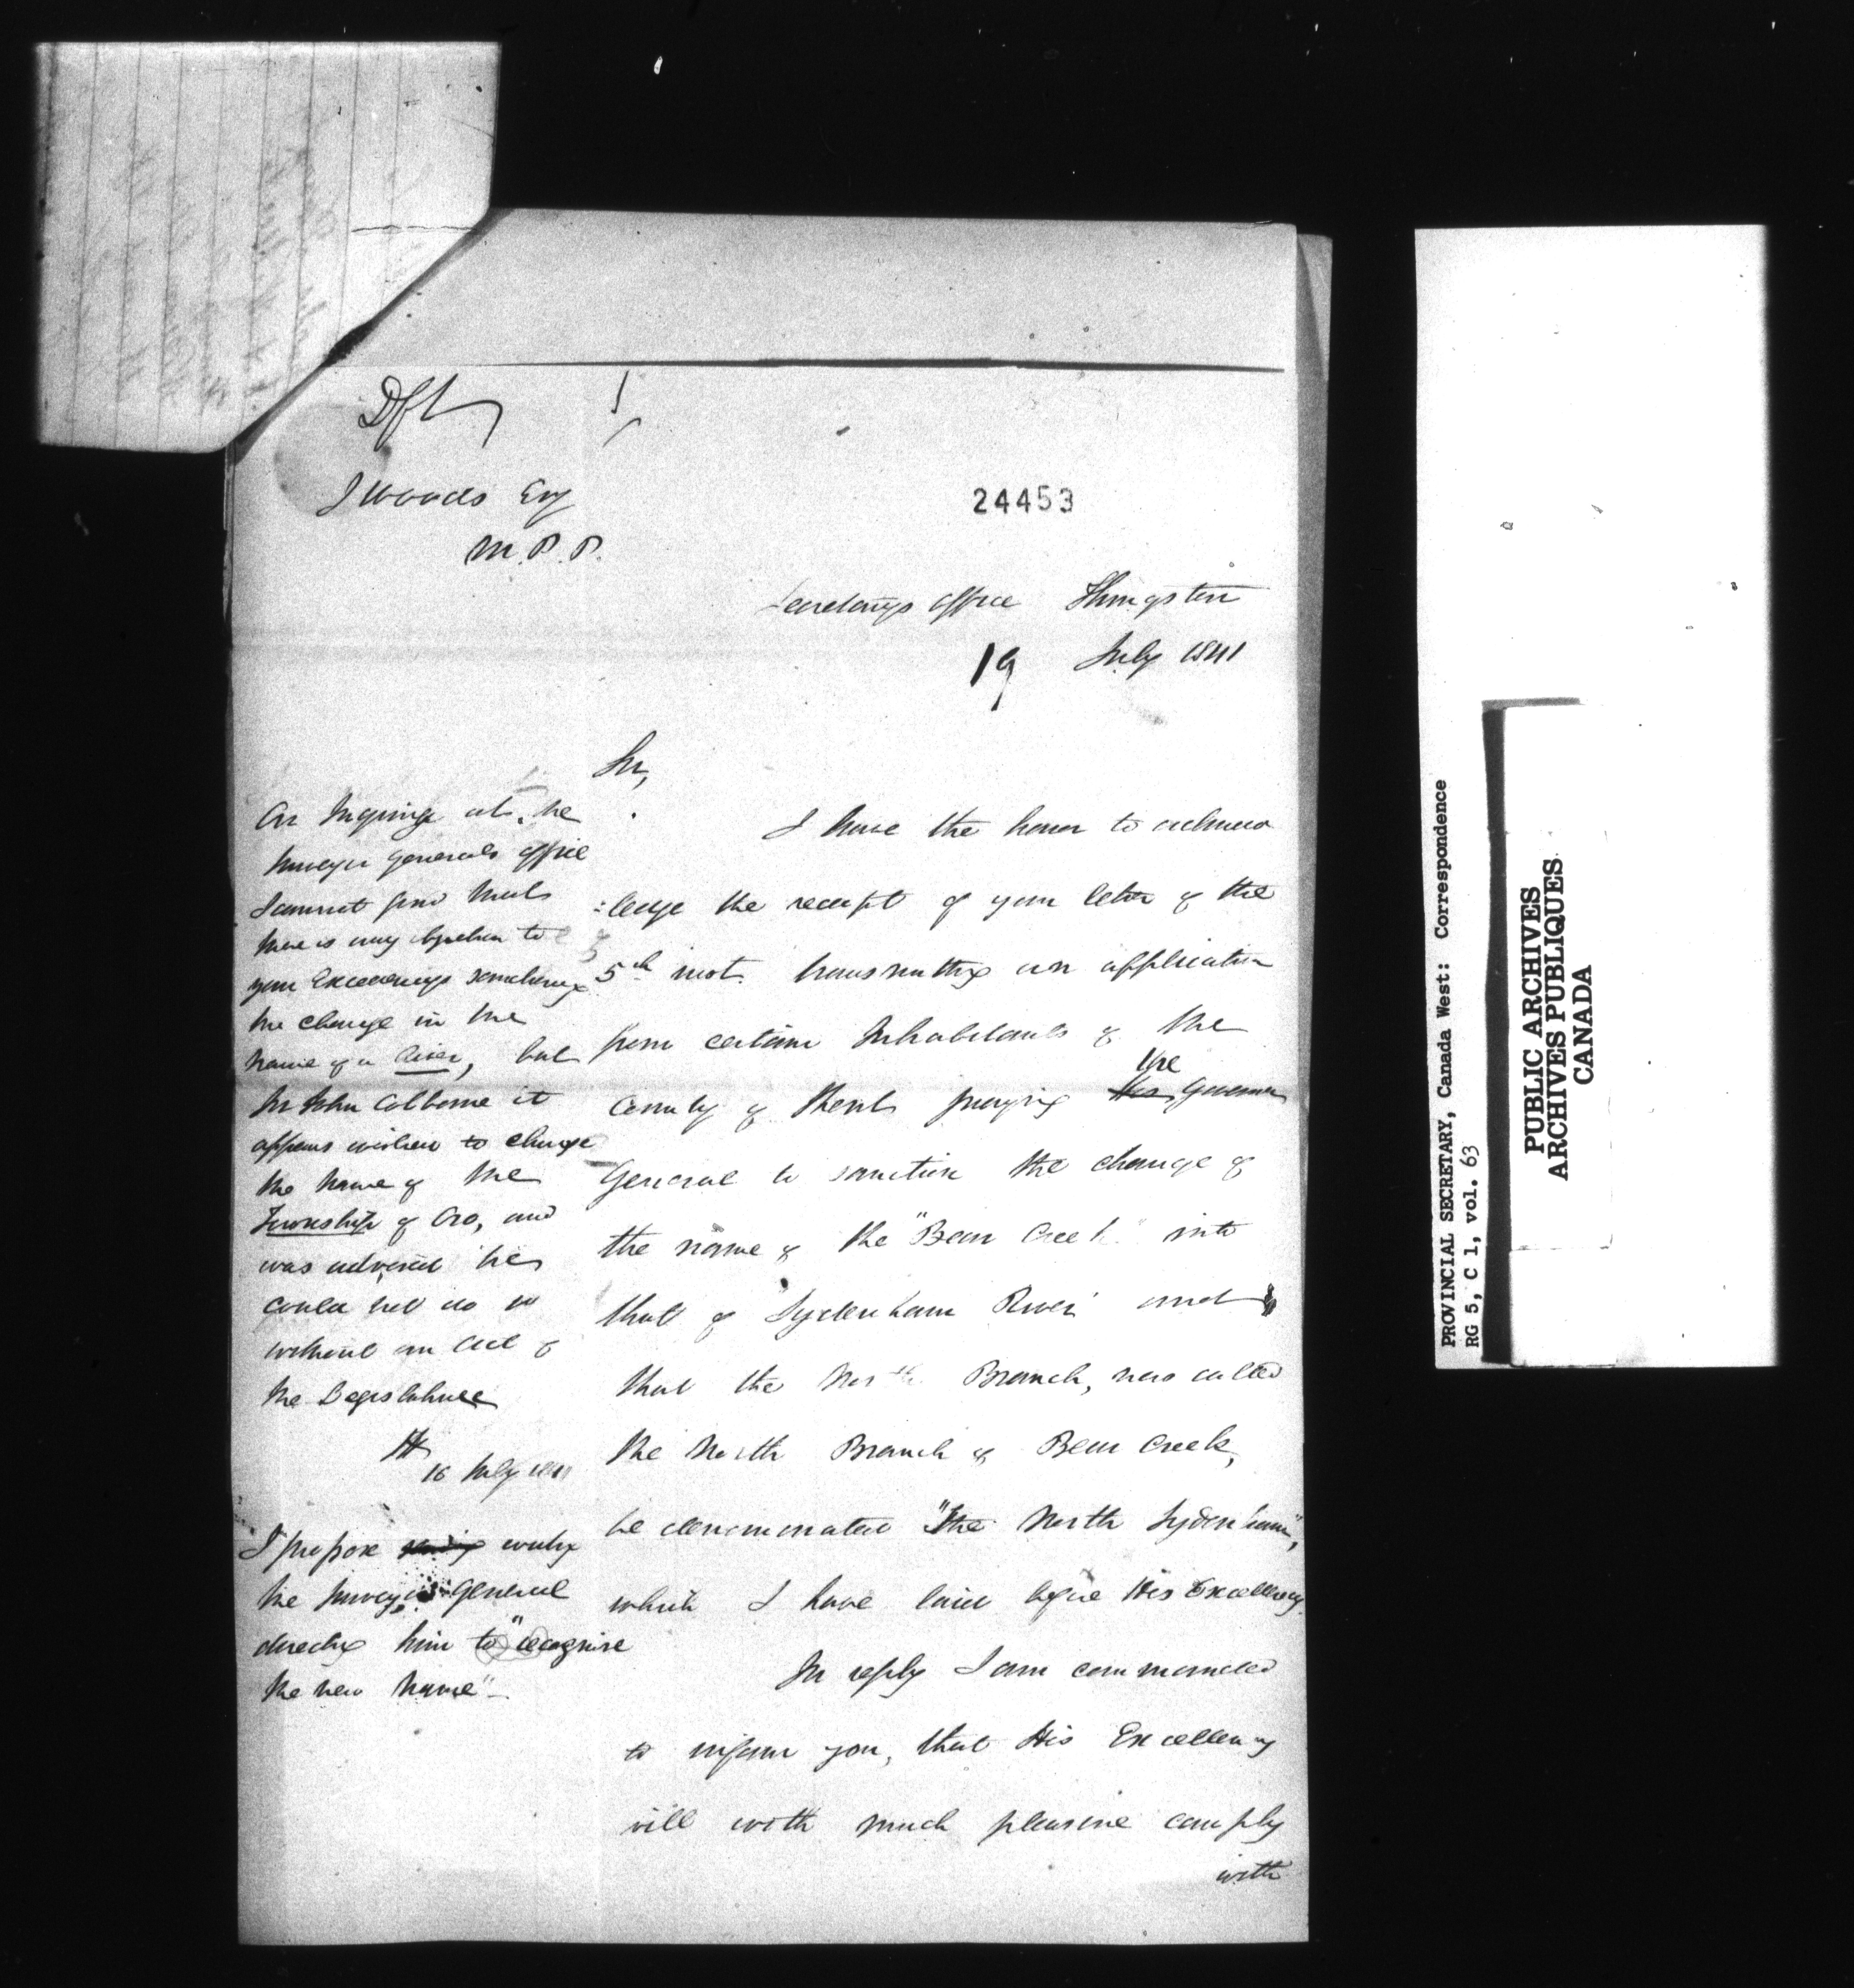 Dft
J Woods Esq
M.P.P.
24453
Secretary's Office Kingston
19 July 1841
Sir,
I have the honor to acknow
:ledge the receipt of your letter of the
5th inst. transmitting an application
from certain Inhabitants of the
County of Kent praying His the Governor
General to sanction the change of
the name of the "Bear Creek" into
that of "Sydenham River" and
that the North Branch, now called
the North Branch of Bear Creek,
be denominated "The North Sydenham",
which I have laid before His Excellency.
In reply I am commanded
to inform you, that His Excellency
will with much pleasure comply
with
On Inquiry at the
Surveyor Generals Office
I cannot find that
there is any objection to
your Excellency's sanctioning
the change in the
name of a River, but
Sir John Colborne it
appears wished to change
the name of the
Township of Oro, and
was advised he
could not do so
without an Act of
the Legislature
16 July 1841
I propose writing
the Surveyor General
directing him to "recognise
the new name"
PROVINCIAL SECRETARY, Canada West: Correspondence
RG 5, C 1, vol. 63
PUBLIC ARCHIVES
ARCHIVES PUBLIQUES
CANADA